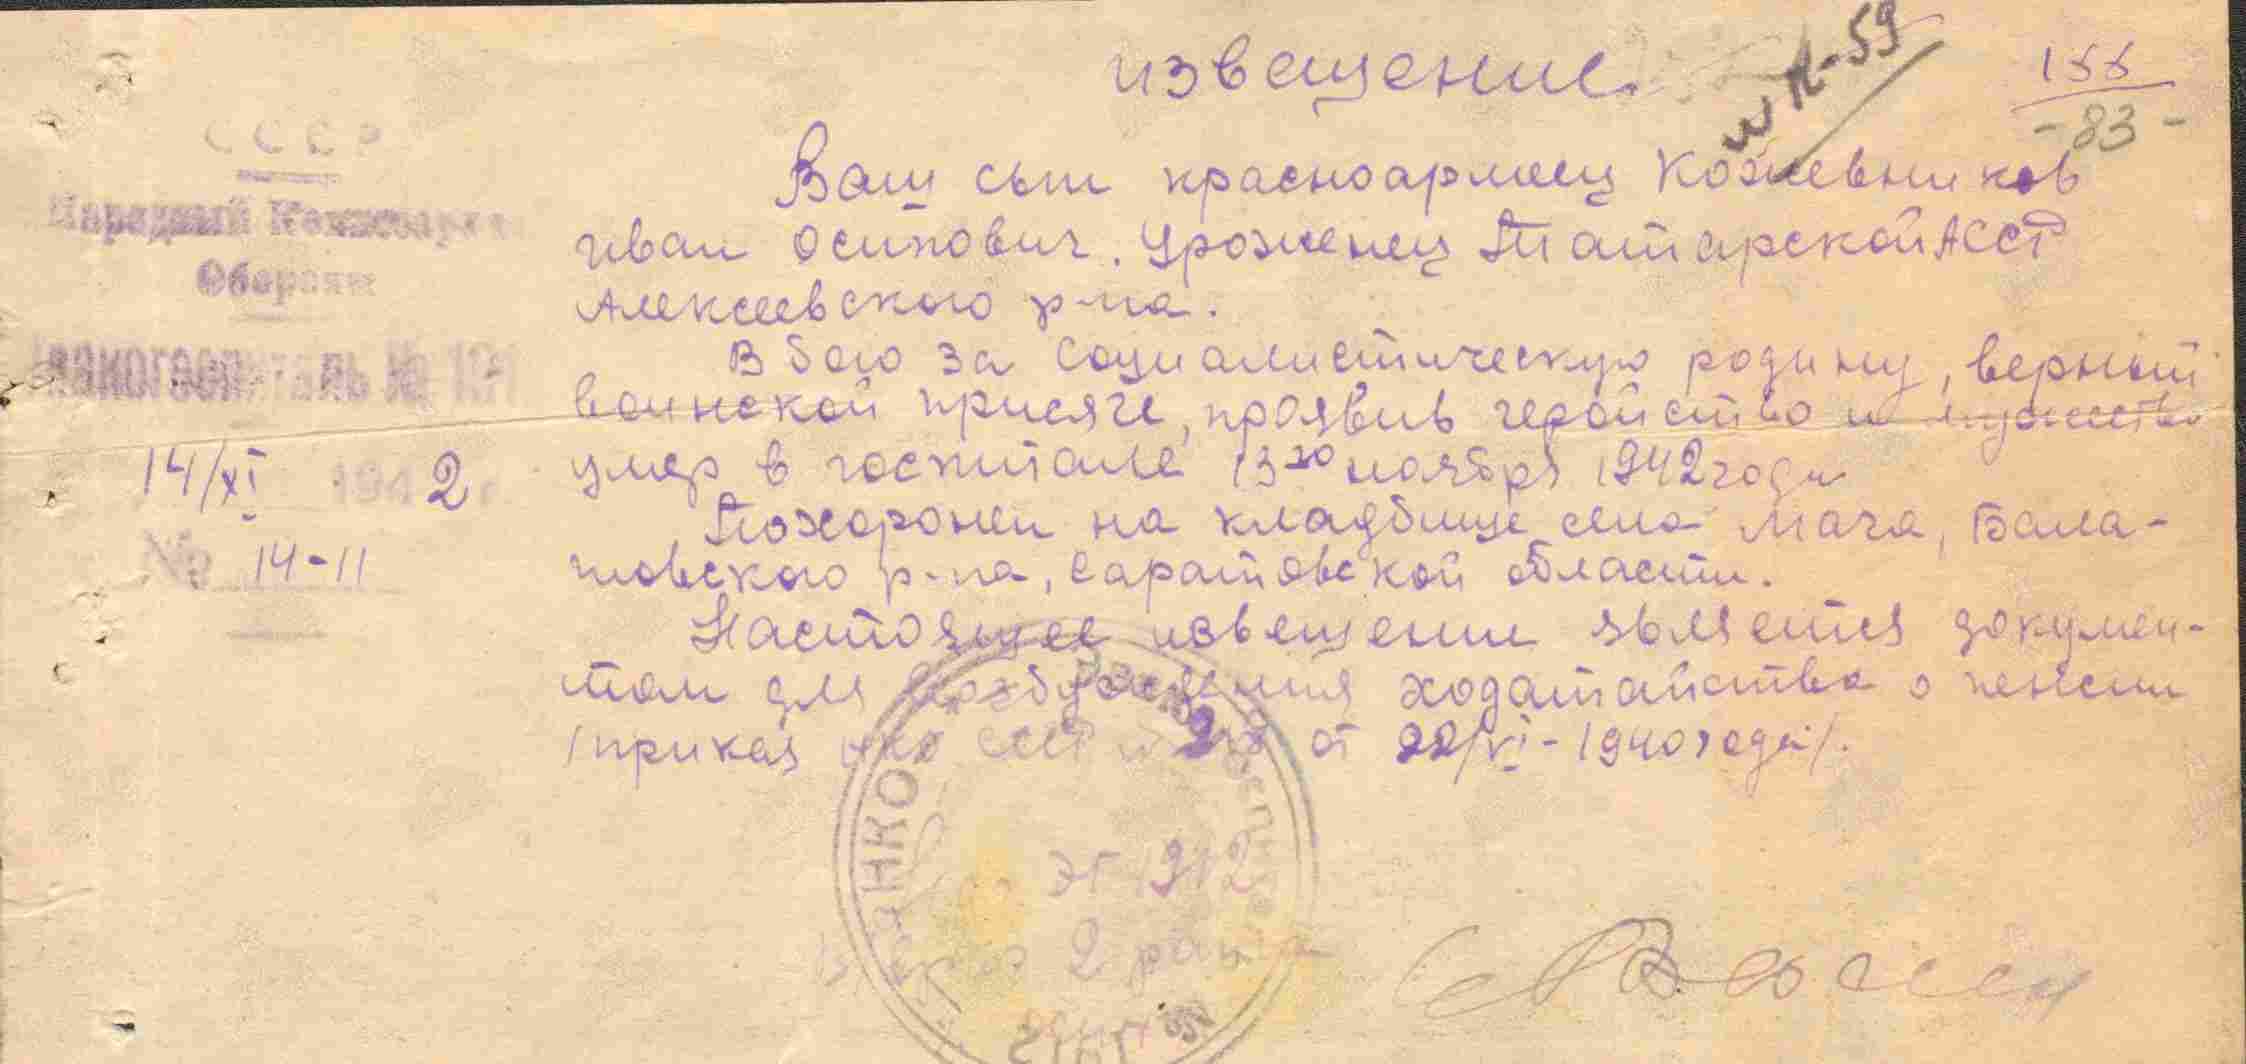 извещение.
w К-59
155
-83-
СССР
Народный Комиссариат
Обороны
Эвакогоспиталь №
14/XI 1942 г.
№ 14-11
Ваш сын красноармеец Кожевников
иван осипович. Уроженец Татарской АССР
Алексеевского р-на.
В бою за Социалистическую родину, верный
воинской присяге, проявив геройство и мужество
умер в госпитале 13го ноября 1942 года
Похоронен на кладбище села Мача, Бала-
шовского р-на, Саратовской области.
Настоящее извещение является докумен-
том для возбуждения ходатайства о пенсии
/приказ НКО СССР № от 22/VI-1940 года/.
ЭГ 1912
2 ранга